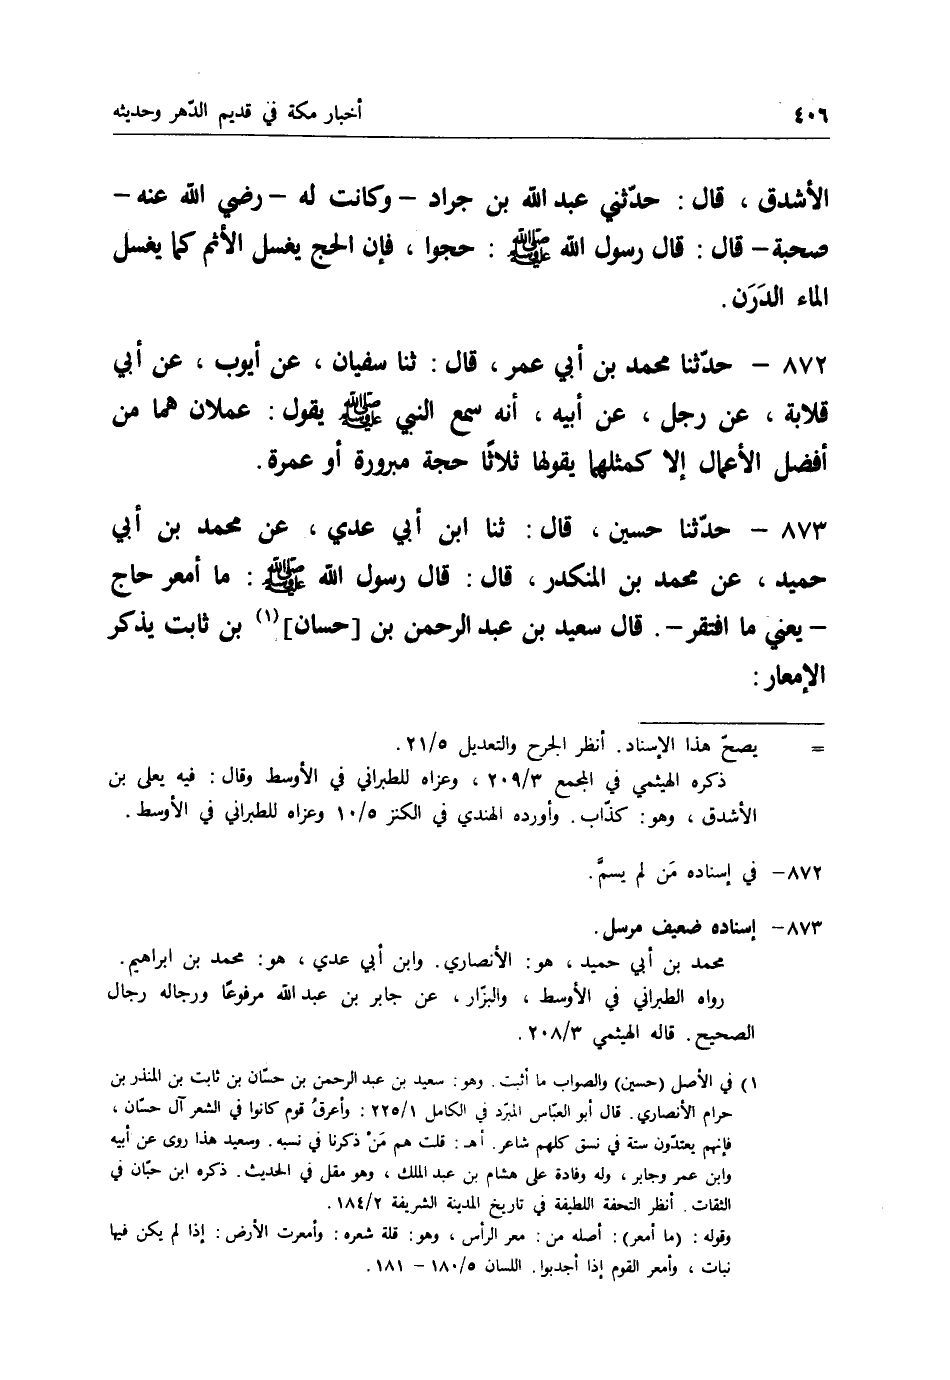 ٤٠٦ أخبار مكة في قديم الدّهر وحديثه
الأشدق ، قال : حدّثني عبد الله بن جراد – وكانت له – رضي الله عنه –
صحبة – قال : قال رسول الله ﷺ : حجوا ، فإن الحج يغسل الأثم كما يغسل
الماء الدَرَن .
٨٧٢ – حدّثنا محمد بن أبي عمر ، قال : ثنا سفيان ، عن أيوب ، عن أبي
قلابة ، عن رجل ، عن أبيه ، أنه سمع النبي ﷺ يقول : عملان هما من
أفضل الأعمال إلا كمثلهما يقولها ثلاثًا حجة مبرورة أو عمرة .
٨٧٣ – حدّثنا حسين ، قال : ثنا ابن أبي عدي ، عن محمد بن أبي
حميد ، عن محمد بن المنكدر ، قال : قال رسول الله ﷺ : ما أمعر حاج
– يعني ما افتقر – . قال سعيد بن عبد الرحمن بن [حسان](١) بن ثابت يذكر
الإمعار :
= يصحّ هذا الإسناد . أنظر الجرح والتعديل ٢١/٥ .
ذكره الهيثمي في المجمع ٢٠٩/٣ ، وعزاه للطبراني في الأوسط وقال : فيه يعلى بن
الأشدق ، وهو : كذّاب . وأورده الهندي في الكنز ١٠/٥ وعزاه للطبراني في الأوسط .
٨٧٢– في إسناده مَن لم يسمَّ .
٨٧٣– إسناده ضعيف مرسل .
محمد بن أبي حميد ، هو : الأنصاري . وابن أبي عدي ، هو : محمد بن ابراهيم .
رواه الطبراني في الأوسط ، والبزّار ، عن جابر بن عبد الله مرفوعًا ورجاله رجال
الصحيح . قاله الهيثمي ٢٠٨/٣ .
١) في الأصل (حسين) والصواب ما أثبت . وهو : سعيد بن عبد الرحمن بن حسّان بن ثابت بن المنذر بن
حرام الأنصاري . قال أبو العبّاس المبرّد في الكامل ٢٢٥/١ : وأعرقُ قوم كانوا في الشعر آل حسّان ،
فإنهم يعتدّون ستة في نسق كلهم شاعر . أهـ : قلت هم مَنْ ذكرنا في نسبه . وسعيد هذا روى عن أبيه
وابن عمر وجابر ، وله وفادة على هشام بن عبد الملك ، وهو مقل في الحديث . ذكره ابن حبّان في
الثقات . أنظر التحفة اللطيفة في تاريخ المدينة الشريفة ١٨٤/٢ .
وقوله : (ما أمعر) : أصله من : معر الرأس ، وهو : قلة شعره : وأمعرت الأرض : إذا لم يكن فيها
نبات ، وأمعر القوم إذا أجدبوا . اللسان ١٨٠/٥ – ١٨١ .